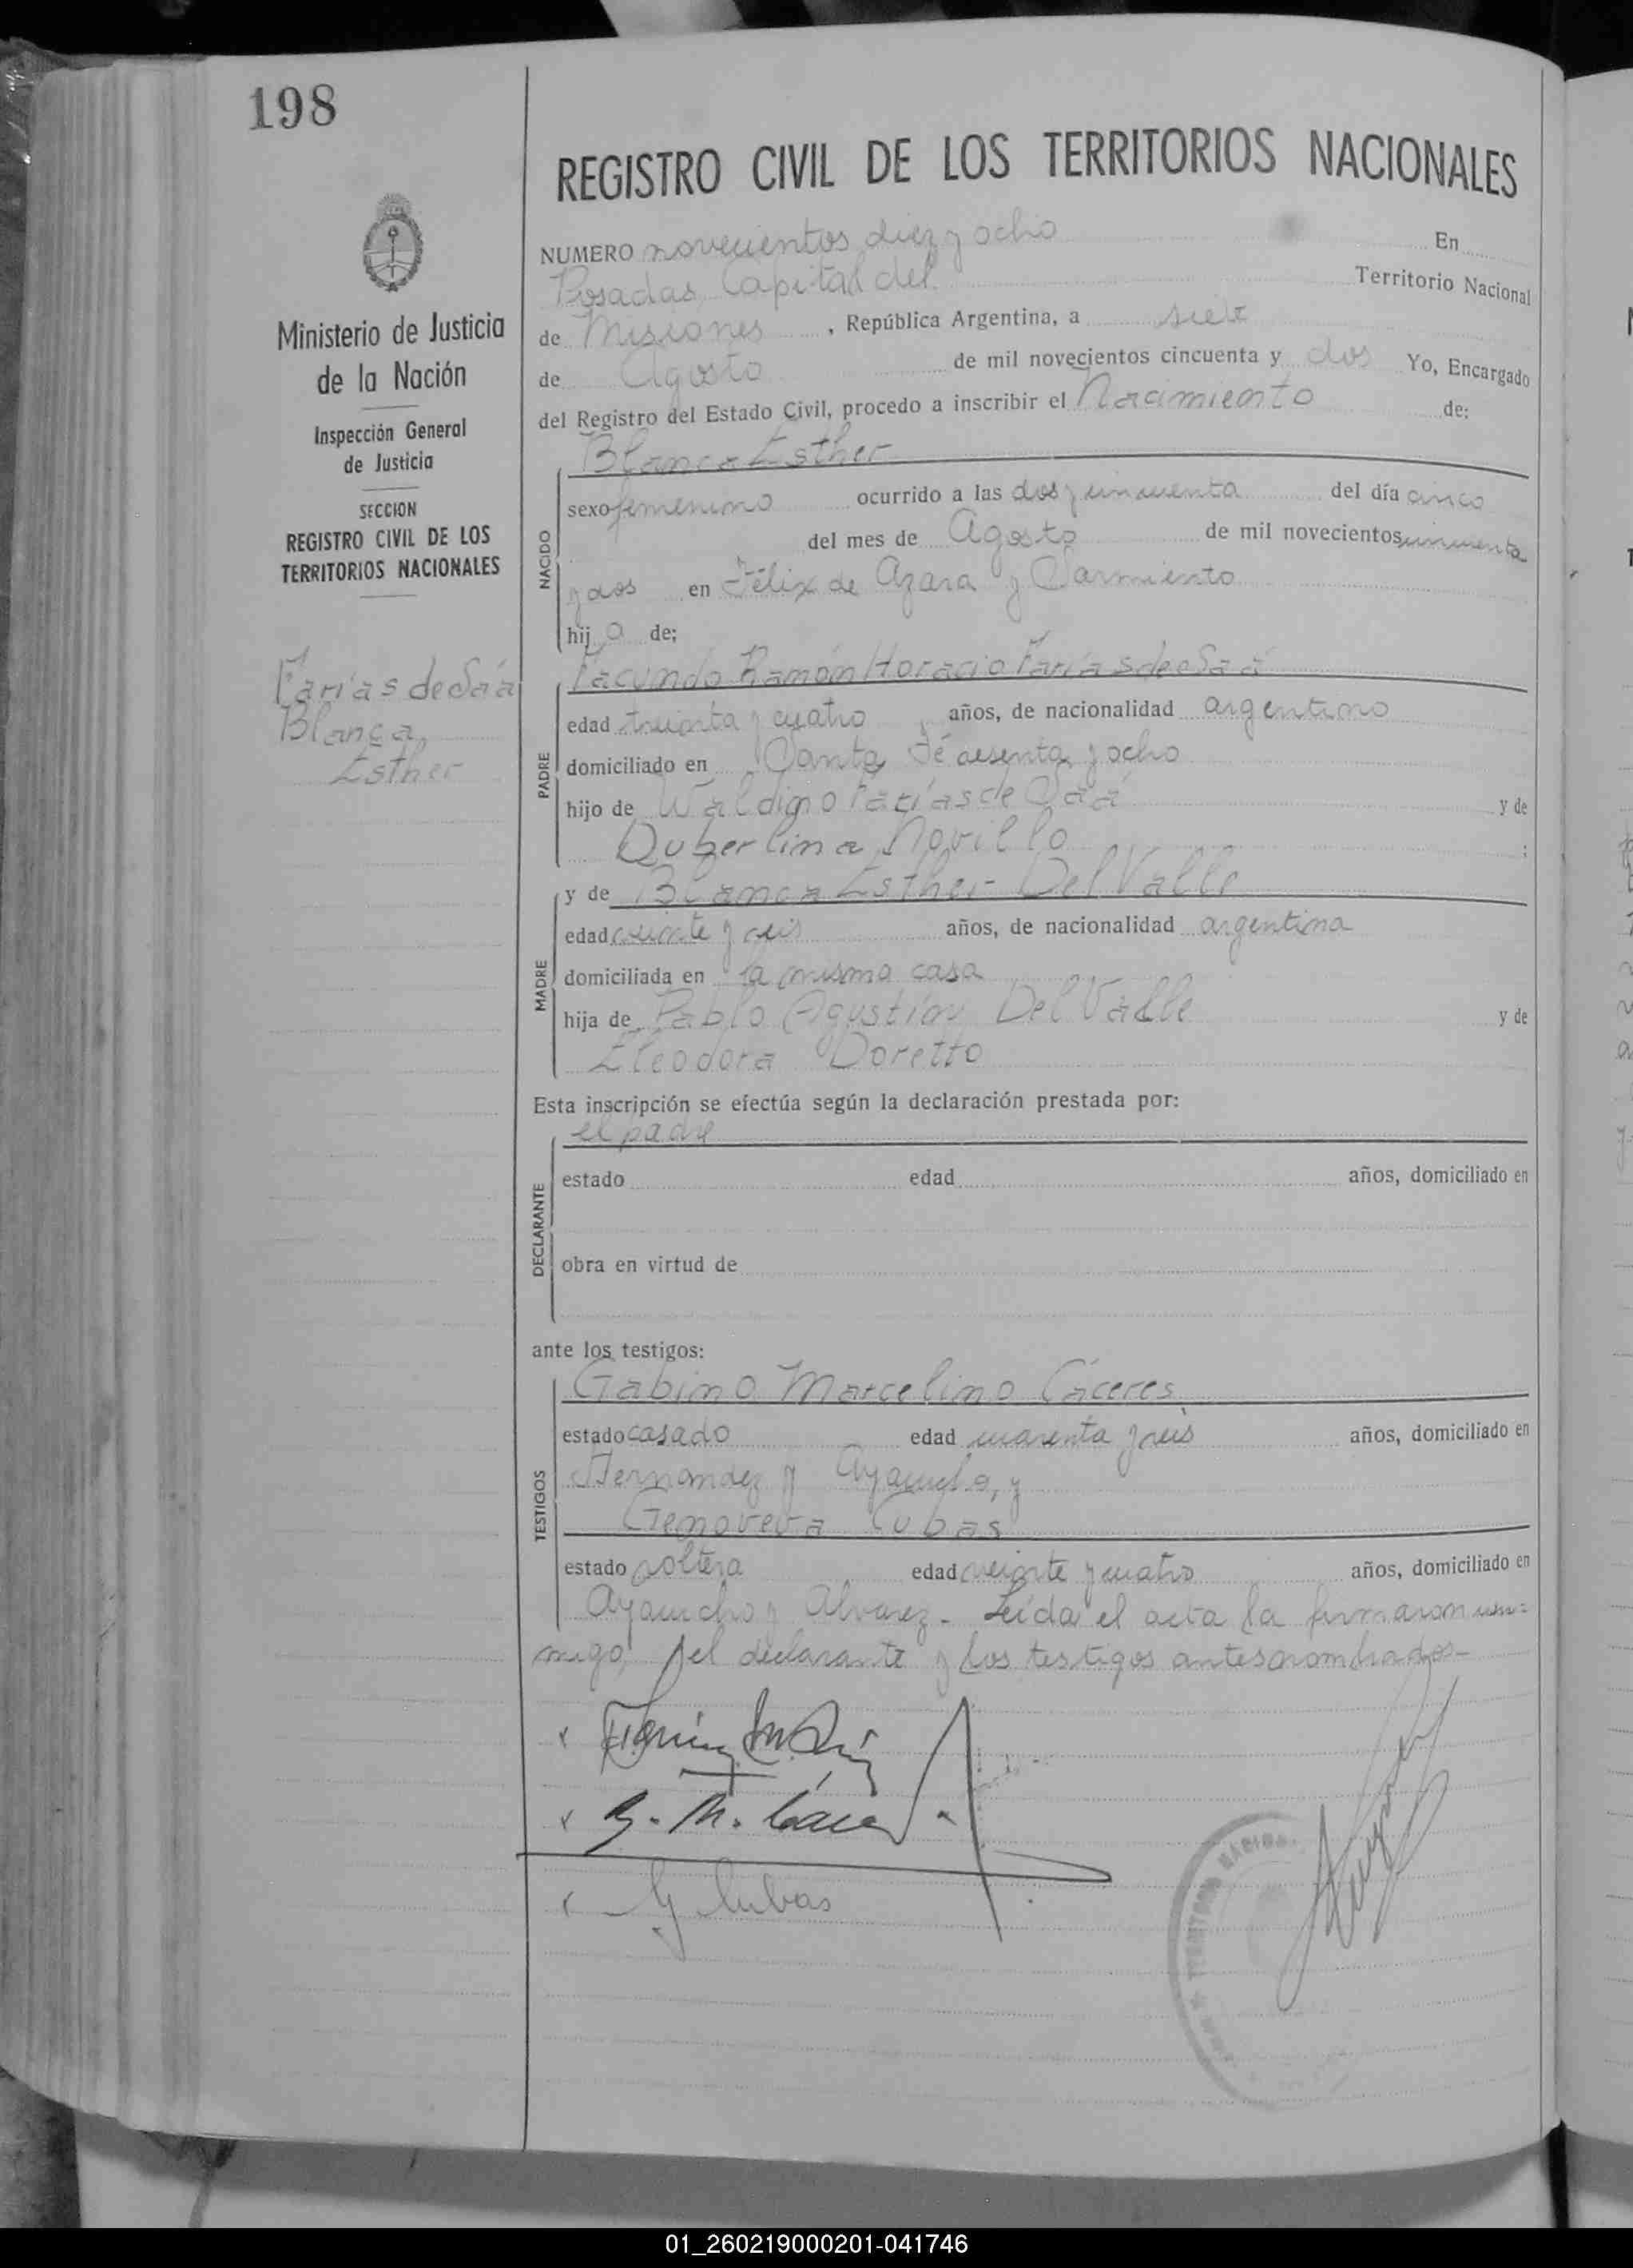 198
REGISTRO CIVIL DE LOS TERRITORIOS NACIONALES
Ministerio de Justicia
de la Nación
Inspección General
de Justicia
SECCION
REGISTRO CIVIL DE LOS
TERRITORIOS NACIONALES
Farías de Sáa
Blanca
Esther
NUMERO novecientos diez y ocho En
Posadas, Capital del Territorio Nacional
de Misiones , República Argentina, a siete
de Agosto de mil novecientos cincuenta y dos Yo, Encargado
del Registro del Estado Civil, procedo a inscribir el Nacimiento de:
NACIDO
Blanca Esther
sexo femenino ocurrido a las dos y cincuenta del día cinco
del mes de Agosto de mil novecientos cincuenta
y dos en Félix de Azara y Sarmiento
hij a de;
PADRE
Facundo Ramón Horacio Farías de Saá
edad treinta y cuatro años, de nacionalidad argentino
domiciliado en Santa Fé sesenta y ocho
hijo de Waldino Farías de Sáá y de
Duberlina Novillo ;
MADRE
y de Blanca Esther Del Valle
edad veinte y seis años, de nacionalidad argentina
domiciliada en la misma casa
hija de Pablo Agustín Del Valle y de
Eleodora Doretto
Esta inscripción se efectúa según la declaración prestada por:
DECLARANTE
el padre
estado edad años, domiciliado en
obra en virtud de
ante los testigos:
TESTIGOS
Gabino Marcelino Cáceres
estado casado edad cuarenta y seis años, domiciliado en
Hernandez y Ayacucho, y
Genoveva Cubas
estado soltera edad veinte y cuatro años, domiciliado en
Ayacucho y Alvarez.- Leída el acta la firmaron con=
migo, el declarante y los testigos antesnombrados-
G. M. Cáceres
G Cubas
TERRITORIO NACIONAL
01_260219000201-041746